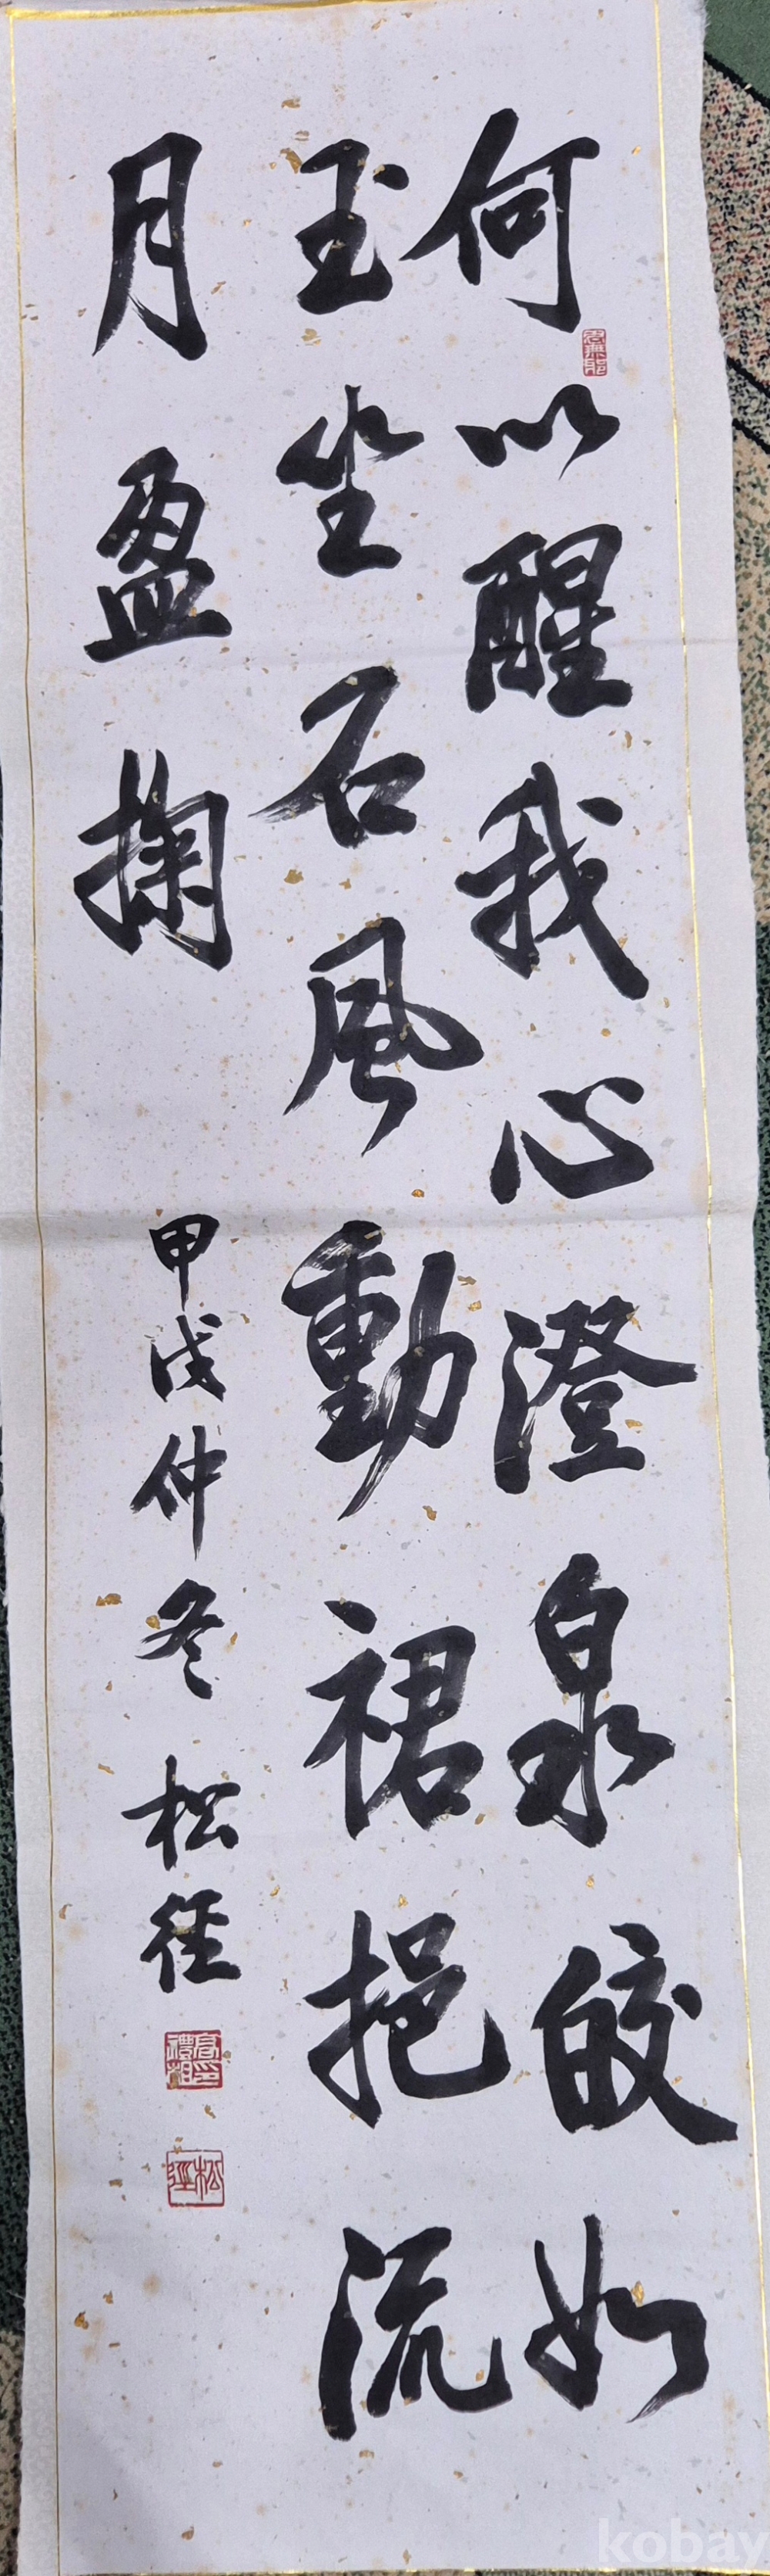 何以醒我心澄泉皎如
玉坐石風動裙挹流
月盈掬
甲戌仲冬 松徑
松徑
kobay